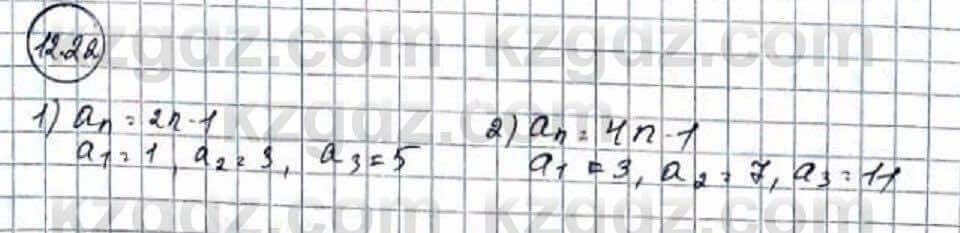 12.22
1) aₙ = 2n - 1
a₁ = 1, a₂ = 3, a₃ = 5
2) aₙ = 4n - 1
a₁ = 3, a₂ = 7, a₃ = 11
kzgdz.com kzgdz.com
kzgdz.com
kzgdz.com kzgdz.com